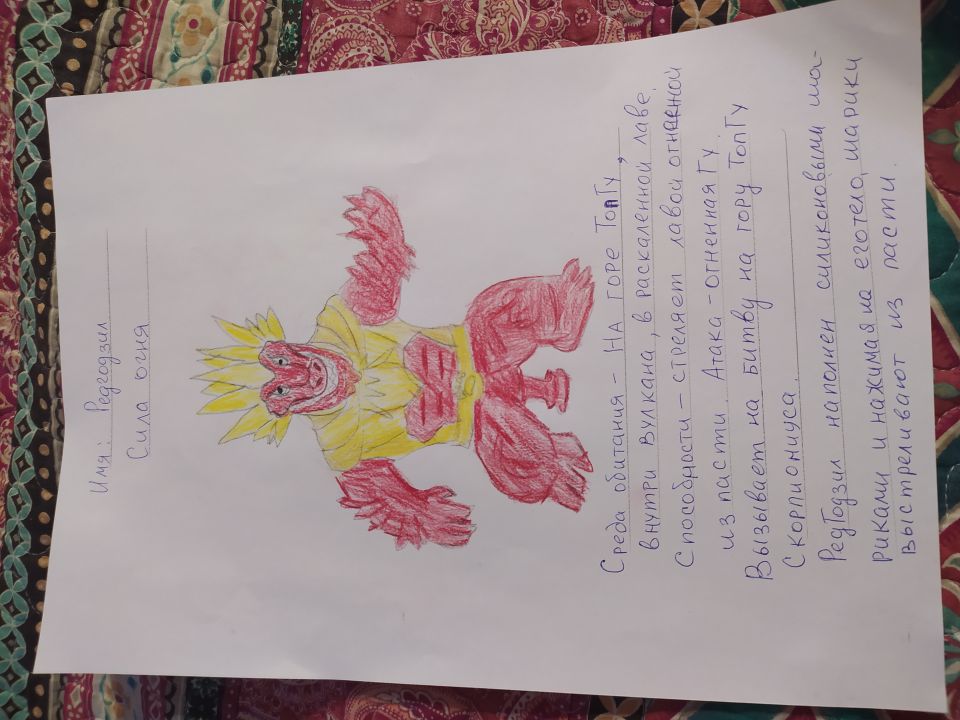 Имя: Редгодзил
Сила огня
Среда обитания - На горе ТопГу,
внутри вулкана, в раскаленной лаве.
Способности - стреляет лавой огненной
из пасти. Атака - огненная Гу.
Вызывает на битву на гору ТопГу
Скорпиониуса.
РедГодзил наполнен силиконовыми ша-
риками и нажимая на его тело, шарики
выстреливают из пасти.